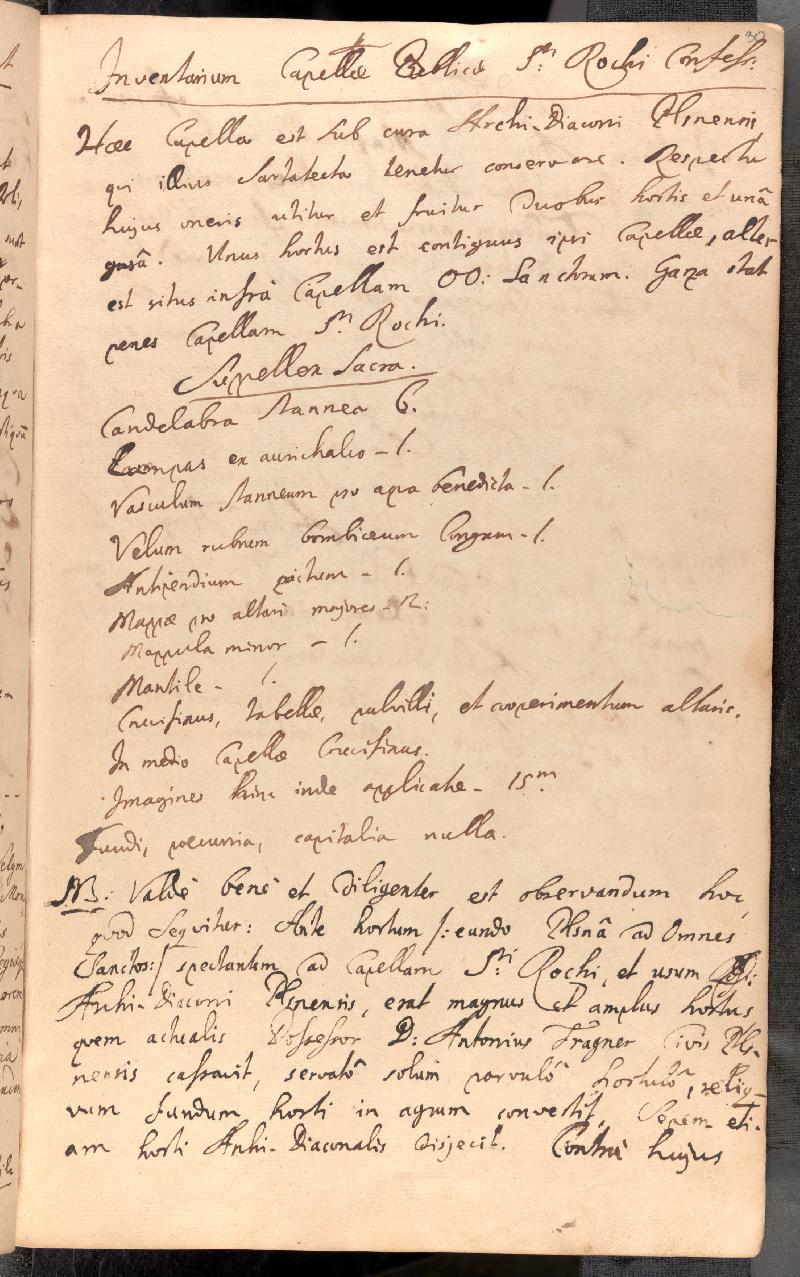 30
Inventarium Capellæ Publicæ Sti Rochi Confess:
Hæc Capella est sub cura Archi-Diaconi Plsnensis,
qui illius Sartatecta tenetur conservare. Respectu
hujus oneris utitur et fruitur Duobus hortis et unâ
gazâ. Unus hortus est contiguus ipsi Capellæ, alter
est situs infrà Capellam OO: Sanctorum. Gaza stat
penes Capellam Sti Rochi.
Supellex Sacra.
Candelabra stannea 6.
Lampas ex aurichalco - 1.
Vasculum stanneum pro aqua benedicta - 1.
Velum rubrum bombiceum longum - 1.
Antipendium pictum - 1.
Mappæ pro altari majores - 2:
Mappula minor - 1.
Mantile - 1.
Crucifixus, tabellæ, pulvilli, et cooperimentum altaris.
In medio Capellæ Crucifixus.
Imagines hinc inde applicatæ - 15m
Fundi, pecunia, capitalia nulla.
NB: Valdè benè et diligenter est observandum hoc,
quod sequitur: Ante hortum /: eundo Plsnâ ad Omnes
Sanctos :/ spectantem ad Capellam Sti Rochi, et usum
Archi-Diaconi Plsnensis, erat magnus et amplus hortus
quem actualis Possessor D: Antonius Fragner Civis Pls-
nensis cassavit, servatô solùm parvulô hortulô, reliq-
uum fundum horti in agrum convertit. Sepem eti-
am horti Archi-Diaconalis disjecit. Contra hujus